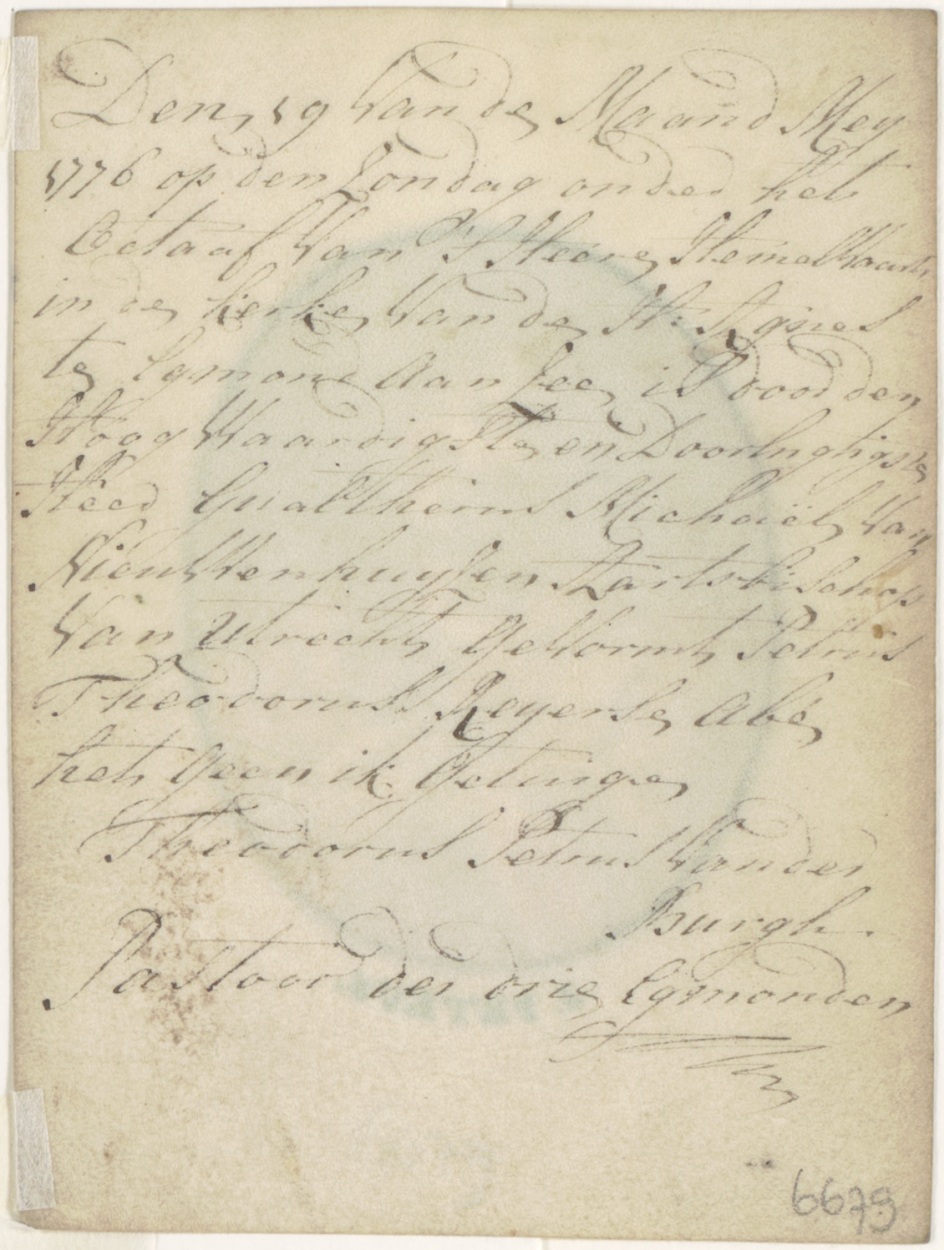 Den, 19 Van de Maand Mey
1776 op den Zondag onder het
Octaaf Van S'Heere Hemelvaart,
in de kerke, Van de H: Agnes
te Egmond Aan Zee, is door den
Hoog Waardigste, en Doorlugtigste
Heer Gualtherus Michaël, Van
Nieuwenhuysen Aartsbisschop
Van Utrecht, Gevormt, Petrus
Theodorus Reyerse,
het, Geen ik Getuige,
Theodorus Petrus Vander
Burgh.
Pastoor der drie Egmonden,
6679